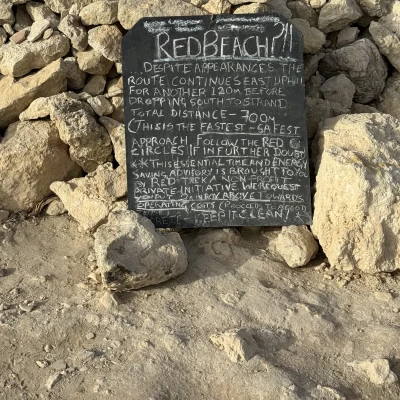 RED BEACH?!!
DESPITE APPEARANCES THE
ROUTE CONTINUES EAST UPHILL
FOR ANOTHER 120M BEFORE
DROPPING SOUTH TO STRAND.
TOTAL DISTANCE - 700M
(THIS IS THE FASTEST - SAFEST
APPROACH. FOLLOW THE RED
CIRCLES IF IN FURTHER DOUBT
** THIS ESSENTIAL TIME AND ENERGY
SAVING ADVISORY IS BROUGHT TO YOU
BY RED TREK A NON PROFIT
PRIVATE INITIATIVE WE REQUEST
IN BOX ABOVE TOWARDS
OPERATING COSTS
KEEP IT CLEAN!